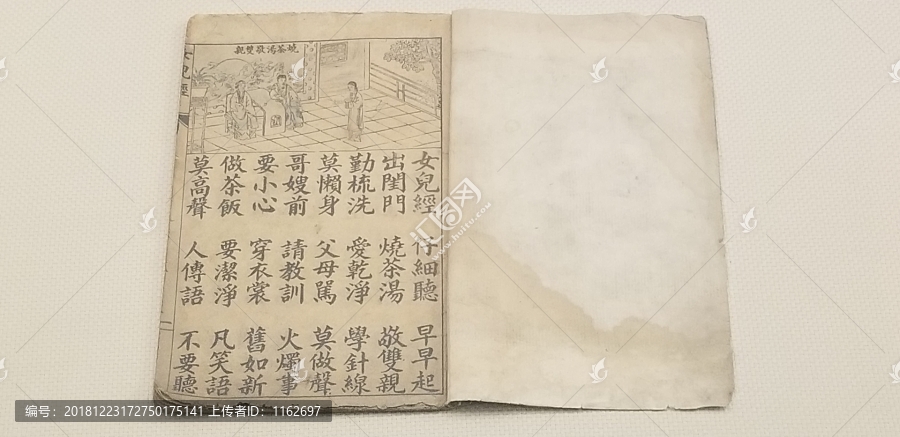 燒茶湯敬雙親
女兒經 仔細聽 早早起
出閨門 燒茶湯 敬雙親
勤梳洗 愛乾淨 學針線
莫懶身 父母罵 莫做聲
哥嫂前 請教訓 火燭事
要小心 穿衣裳 舊如新
做茶飯 要潔淨 凡笑語
莫高聲 人傳語 不要聽
女兒經
汇图网
编号：20181223172750175141 上传者ID：1162697